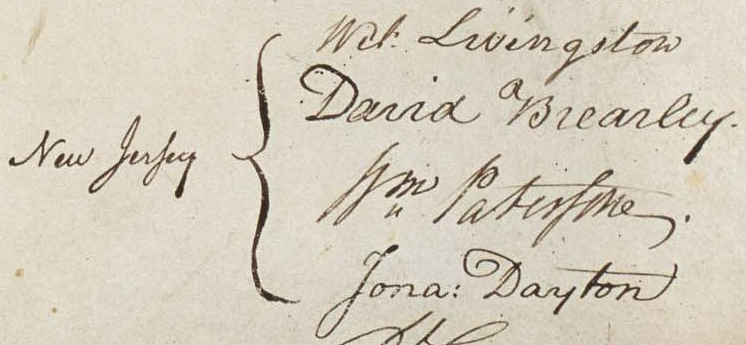 New Jersey
Wil: Livingston
David Brearley.
Wm Paterson.
Jona: Dayton